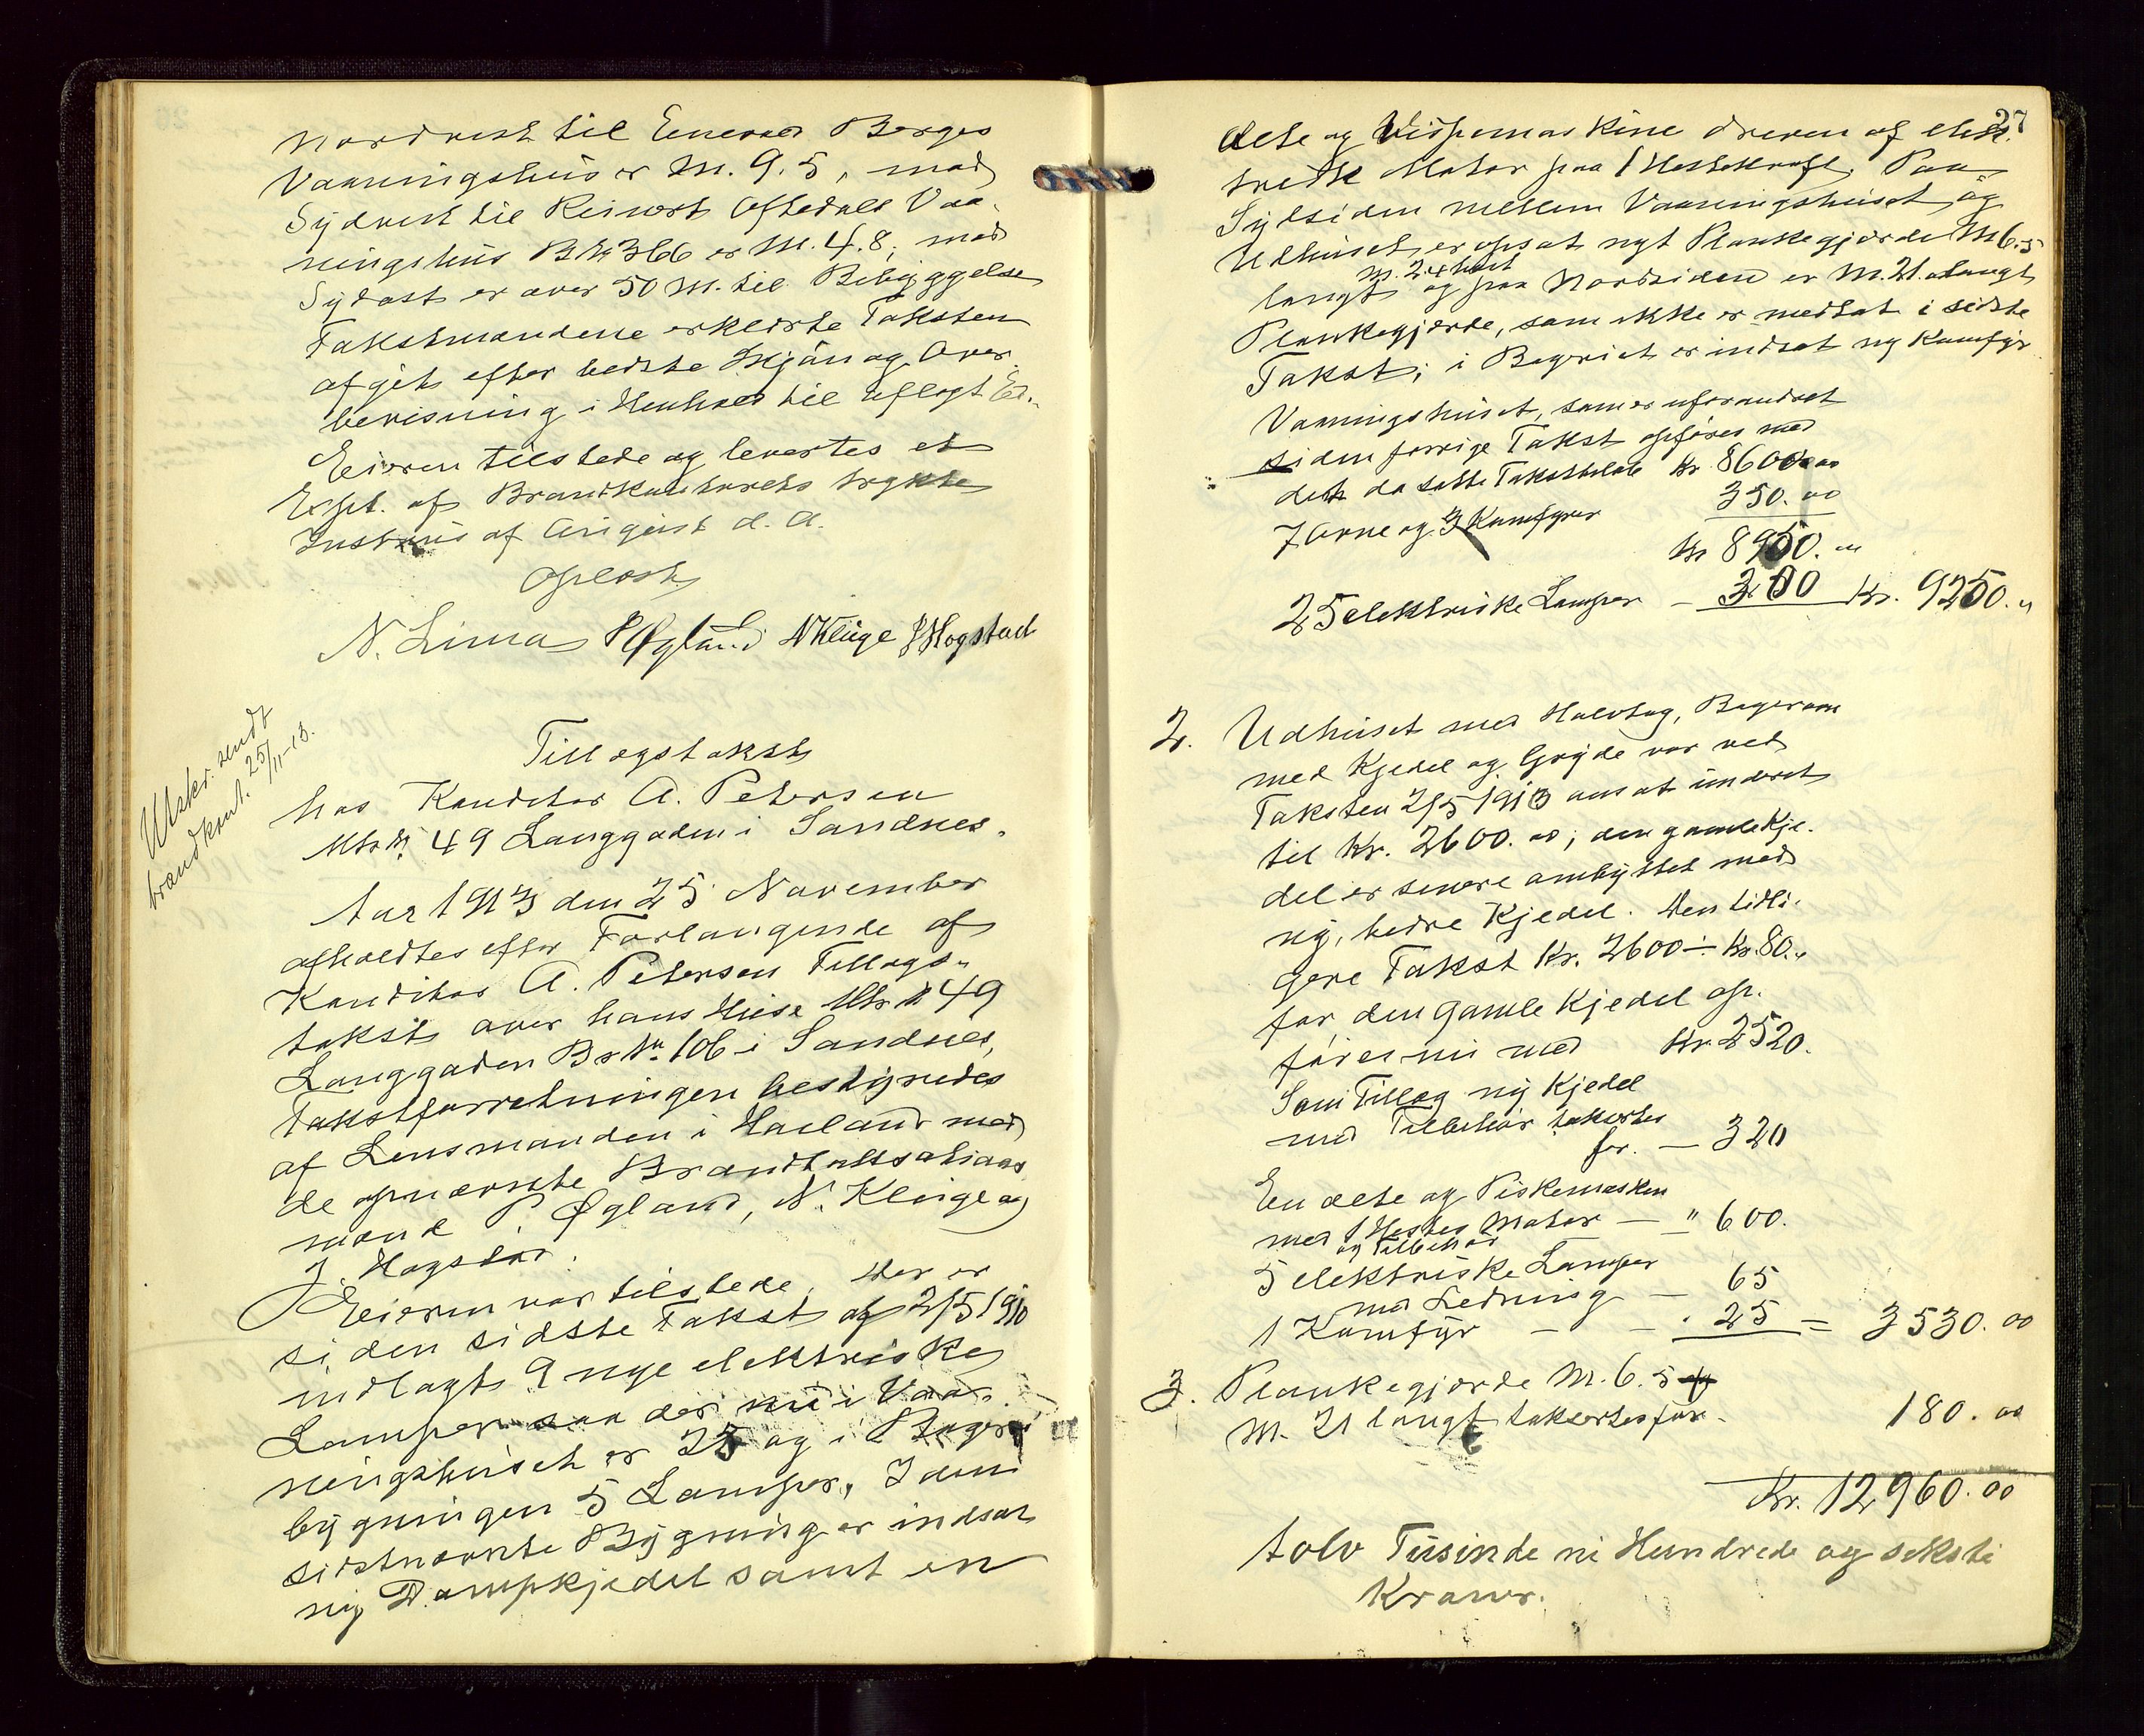 Nordvest til Enevald Berges
Vaaningshus er M. 9.5, mod
Sydvest til Reinert Aftedals Vaa-
ningshus B № 366 er M. 4.8, mod
Sydost er over 50 M. til Bebyggelse
Takstmændene erklærte Taksten
afgit efter bedste Skjøn og Over-
bevisning i Henhold til aflagt Ed.
Eieren tilstede og levertes et
Expl. af Brandkontorets trykte
Instrus af August d. A.
Oplæst
N. Lima P Øgland N Kluge J Hogstad
Utskr. sendt
brandkont. 25/11-13.
Tillægstakst
hos Konditor A. Petersen
Mtr № 49 Langgaden i Sandnes.
Aar 1913 den 25 November
afholdtes efter Forlangende af
Konditor A. Petersen Tillægs-
takst over hans Huse Mtr № 49
Langgaden Br № 106 i Sandnes,
Takstforretningen bestyredes
af Lensmanden i Haaland med
de opnævnte Brandtakstations
mænd P. Øgland, N. Kluge og
J. Hogstad.
Eieren var tilstede. Der er
siden sidste Takst af 2/5 1910
indlagt 9 nye elektriske
Lamper saa der nu i Vaa-
ningshuset er 25 og i Bageri
bygningen 5 Lamper. I den
sidstnævnte Bygning er indsat
ny Dampkjedel samt en
27
ælte og Vispemaskine dreven af elek-
trisk Motor paa 1 Hestekraft. Paa
Sydsiden mellem Vaaningshuset og
Udhuset er opsat nyt Plankegjærde M 6.5
M. 2. høit
langt og paa Nordsiden er M. 21. langt
Plankegjærde, som ikke er medtat i sidste
Takst; i Bageriet er indsat ny Komfyr
Vaaningshuset, som er uforandret
siden forrige Takst opføres med
det da satte Takstbeløb Kr. 8600.00
7 Ovne og 3 Komfyrer 350.00
Kr 8950.00
25 elektriske Lamper - 300 Kr. 9250.00
2. Udhuset med Halvtag, Bagerovn
med Kjedel og Gryde var ved
Taksten 2/5 1910 ansat under et
til Kr. 2600.00; den gamle Kje-
del er senere ombyttet med
ny, bedre Kjedel. Den tidli-
gere Takst Kr. 2600 ÷ Kr. 80.00
for den gamle Kjedel op-
føres nu med Kr 2520.
Som Tillæg ny Kjedel
med Tilbehør taksertes
for. — 320
En ælte og Piskemaskin
med 1 Hestes Motor — " 600.
og Tilbehør
5 elektriske Lamper
med Ledning — 65
1 Komfyr — - . 25 = 3530.00
3. Plankegjærde M. 6.5 og
M. 21 langt taksertes for - 180.00
Kr. 12960.00
tolv Tusinde ni Hundrede og seksti
Kroner.